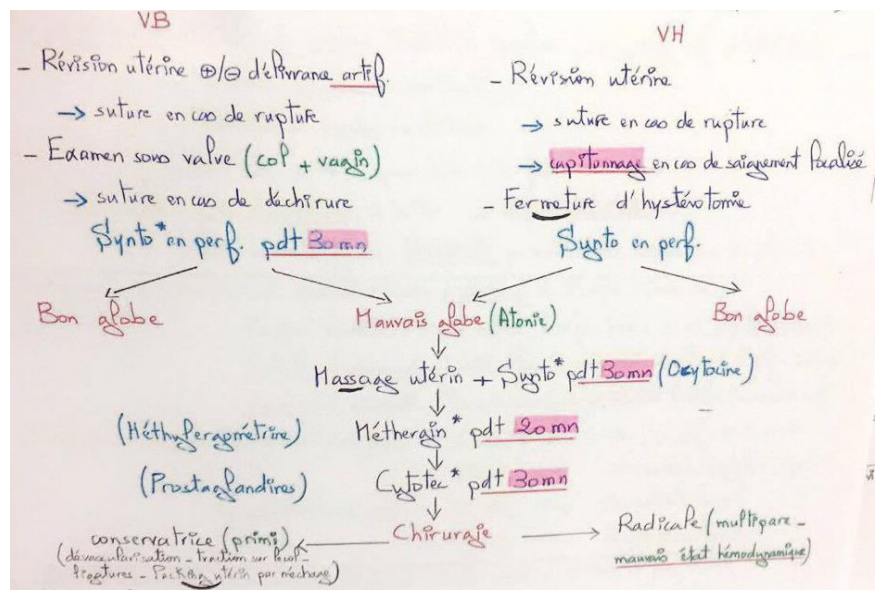 VB
- Révision utérine ⊕/⊖ délivrance artif.
→ suture en cas de rupture
- Examen sous valve (col + vagin)
→ suture en cas de déchirure
Synto* en perf. pdt 30mn
VH
- Révision utérine
→ suture en cas de rupture
→ capitonnage en cas de saignement focalisé
- Fermeture d'hystérotomie
Synto en perf.
Bon globe
Mauvais globe (Atonie)
Bon globe
Massage utérin + Synto* pdt 30mn (Ocytocine)
(Méthylergométrine)
Méthergin* pdt 20mn
(Prostaglandines)
Cytotec* pdt 30mn
Chirurgie
conservatrice (primi)
(dévascularisation - traction sur le col -
ligatures - Packing utérin par méchage)
Radicale (multipare -
mauvais état hémodynamique)